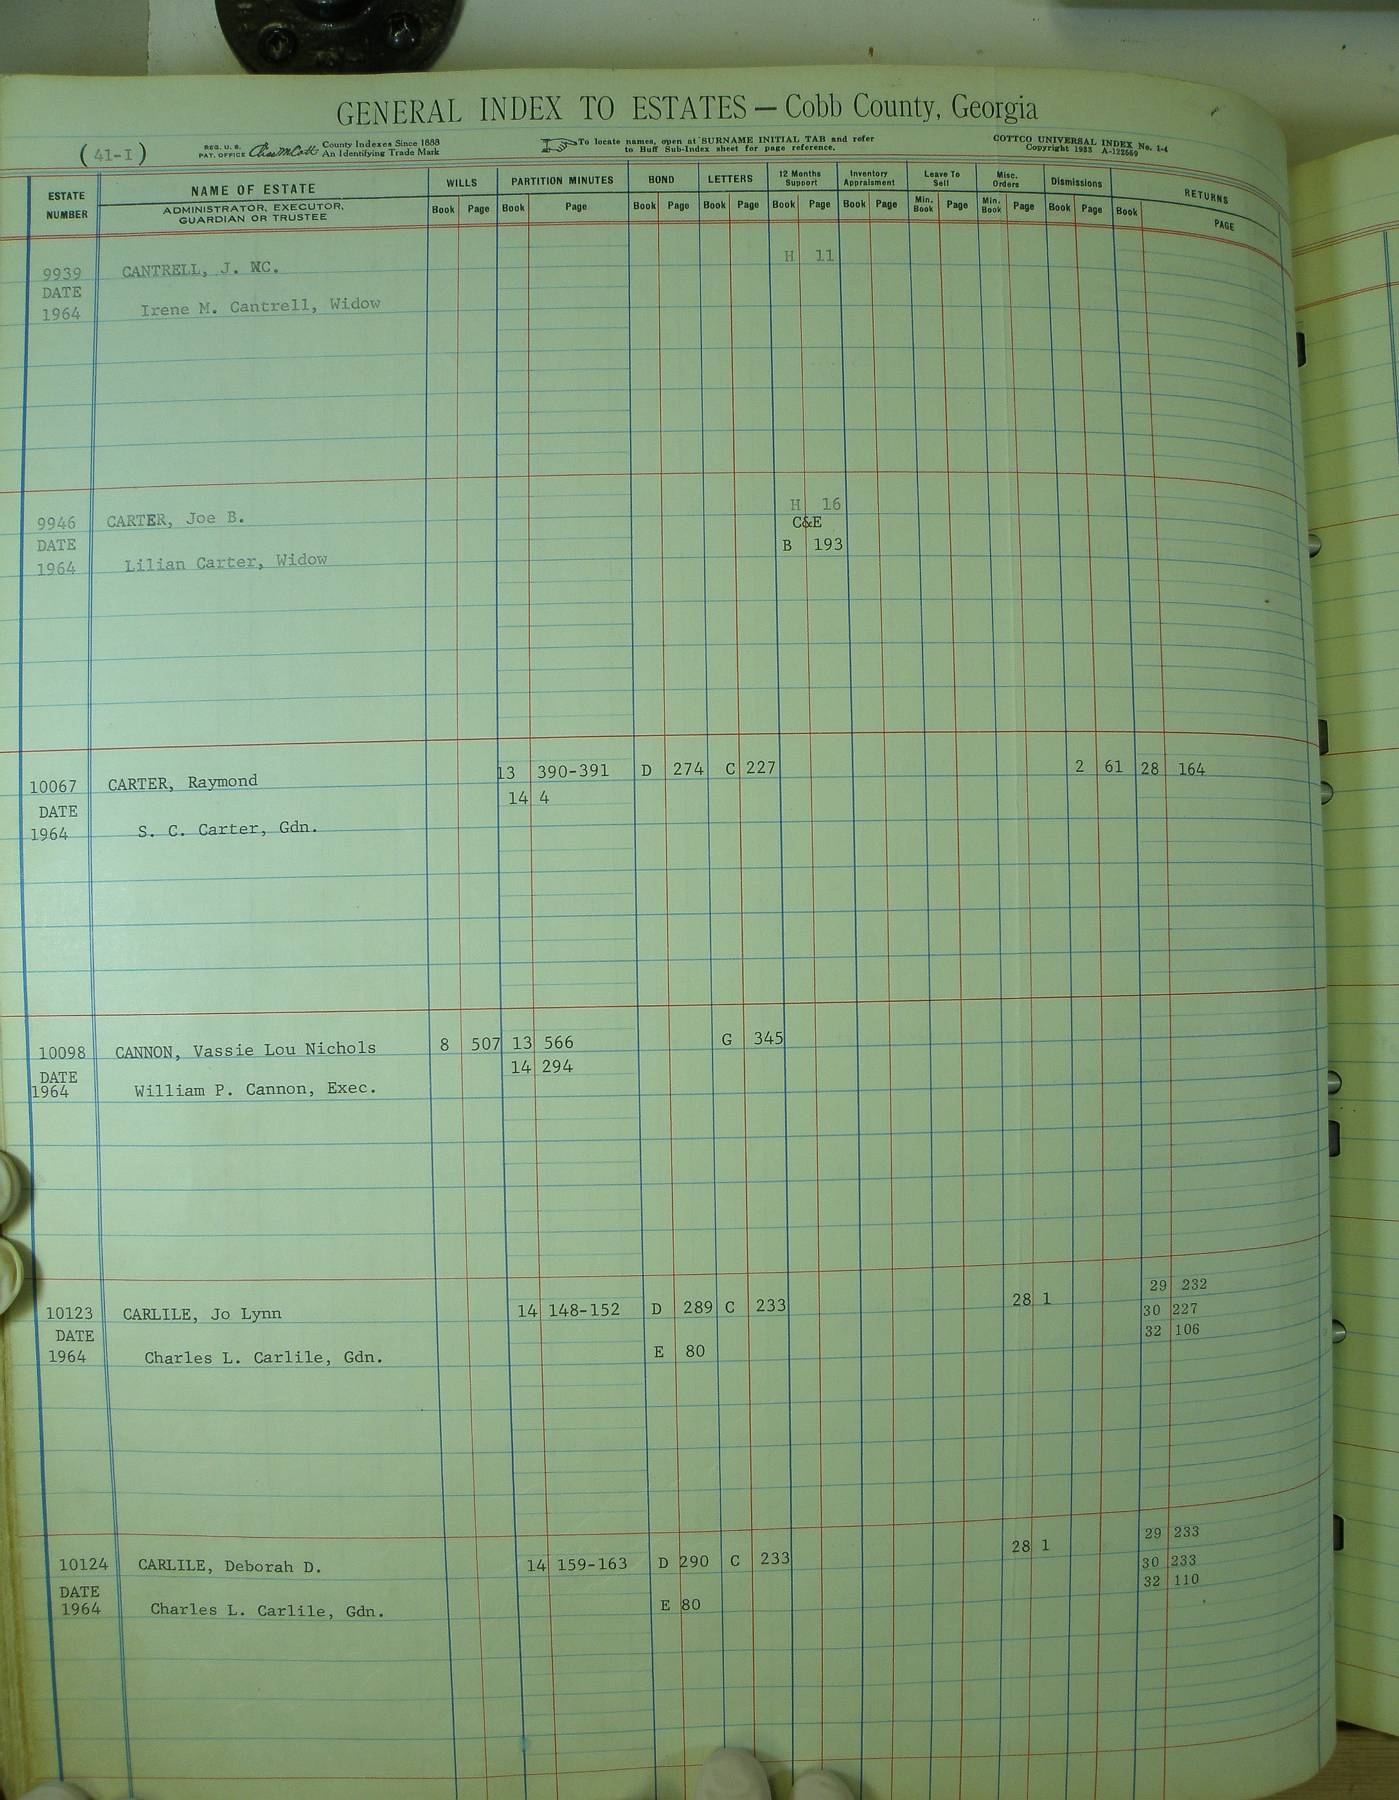 GENERAL INDEX TO ESTATES — Cobb County, Georgia
(41-I) REG. U. S. PAT. OFFICE County Indexes Since 1888 An Identifying Trade Mark To locate names, open at SURNAME INITIAL TAB and refer to Buff Sub-Index sheet for page reference. COTTCO UNIVERSAL INDEX No. 1-4 Copyright 1933
ESTATE NUMBER NAME OF ESTATE WILLS PARTITION MINUTES BOND LETTERS 12 Months Support Inventory Appraisment Leave To Sell Misc. Orders Dismissions RETURNS
ADMINISTRATOR, EXECUTOR, GUARDIAN OR TRUSTEE Book Page Book Page Book Page Book Page Book Page Book Page Min. Book Page Min. Book Page Book Page Book PAGE
9939 CANTRELL, J. C. H 11
DATE
1964 Irene M. Cantrell, Widow
9946 CARTER, Joe B. H 16
DATE C&E
B 193
1964 Lilian Carter, Widow
10067 CARTER, Raymond 13 390-391 D 274 C 227 2 61 28 164
DATE 14 4
1964 S. C. Carter, Gdn.
10098 CANNON, Vassie Lou Nichols 8 507 13 566 G 345
DATE 14 294
1964 William P. Cannon, Exec.
29 232
10123 CARLILE, Jo Lynn 14 148-152 D 289 C 233 28 1 30 227
DATE 32 106
1964 Charles L. Carlile, Gdn. E 80
29 233
10124 CARLILE, Deborah D. 14 159-163 D 290 C 233 28 1 30 233
DATE 32 110
1964 Charles L. Carlile, Gdn. E 80